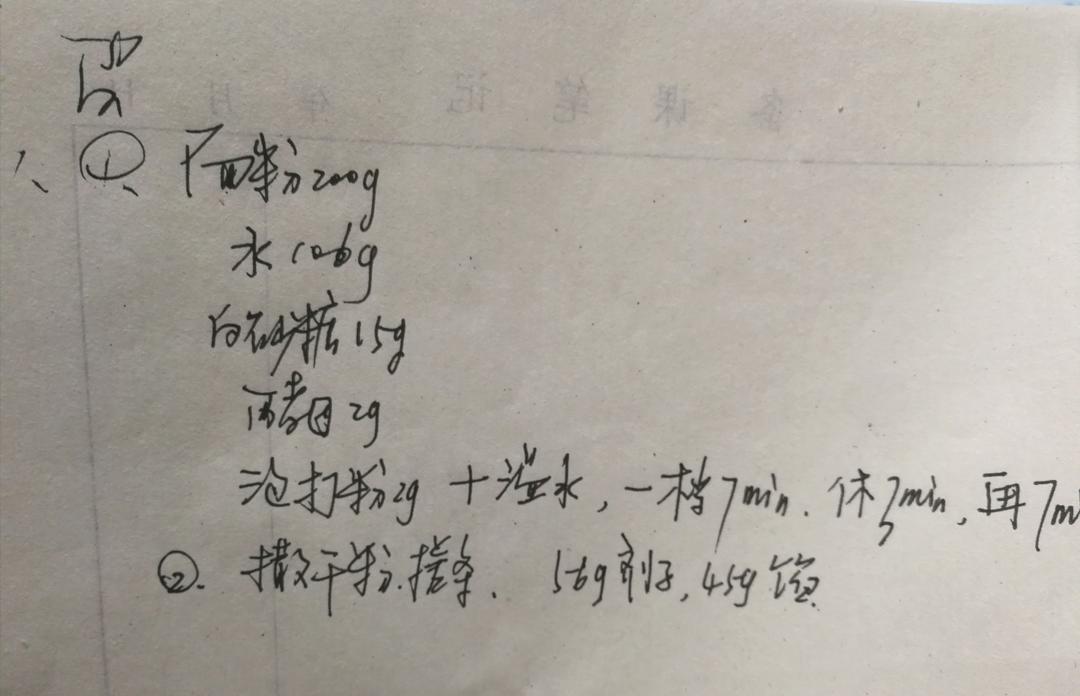 1、①、面粉200g
水106g
白砂糖15g
酵母2g
泡打粉2g + 温水, 一档7min. 休3min, 再7mi
②. 撒干粉.搓条. 56g剂子, 45g馅.